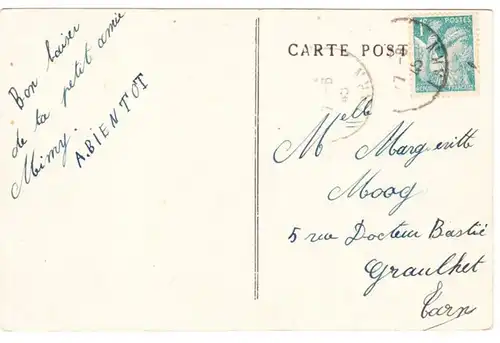 Bon baiser
de ta petit amie
Mimy.
A.BIENTOT
CARTE POST
1F
POSTES
Melle Margeritte
Moog
5 rue Docteur Bastié
Graulhet
Tarn